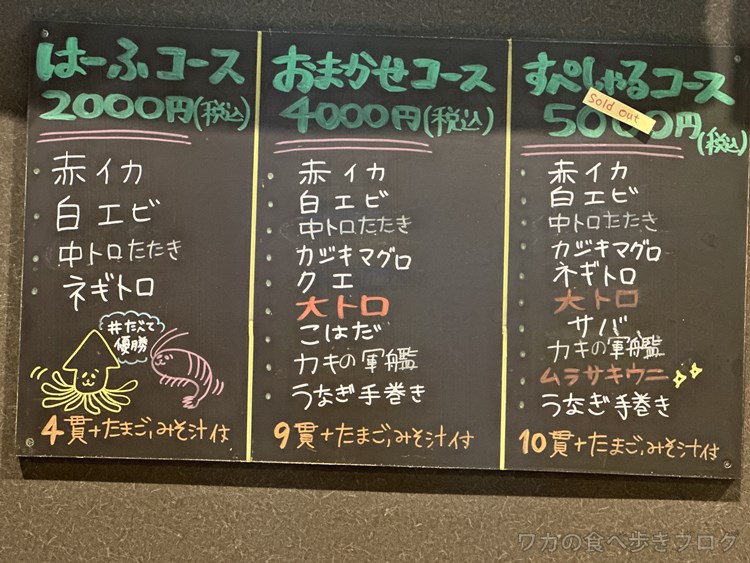 はーふコース
2000円(税込)
赤イカ
白エビ
中トロたたき
ネギトロ
#だって
優勝
4貫+たまご,みそ汁付
おまかせコース
4000円(税込)
赤イカ
白エビ
中トロたたき
カジキマグロ
クエ
大トロ
こはだ
カキの軍艦
うなぎ手巻き
9貫+たまご,みそ汁付
すぺしゃるコース
Sold out
5000円(税込)
赤イカ
白エビ
中トロたたき
カジキマグロ
ネギトロ
大トロ
サバ
カキの軍艦
ムラサキウニ
うなぎ手巻き
10貫+たまご,みそ汁付
ワカの食べ歩きブログ